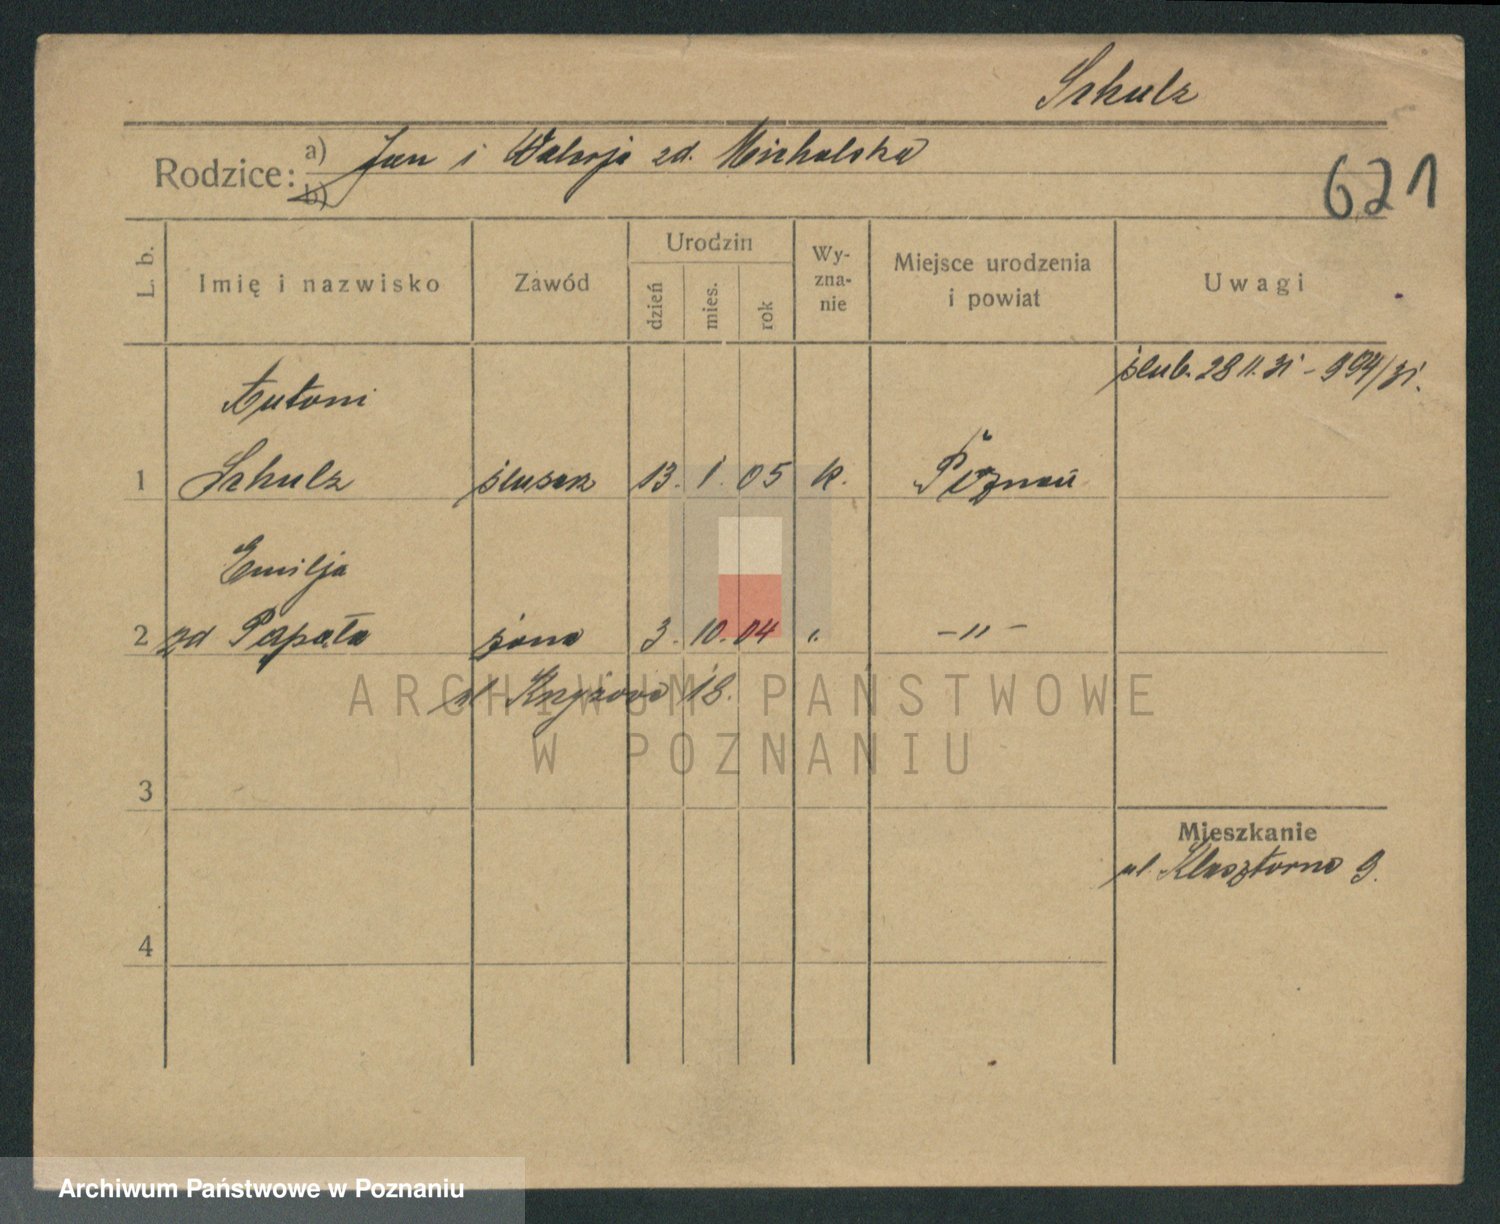 Schulz
Rodzice: a) Jan i Walerja zd. Michalska
b)
621
L. b.
Imię i nazwisko
Zawód
Urodzin
dzień
mies.
rok
Wy-
zna-
nie
Miejsce urodzenia
i powiat
Uwagi
ślub. 28 11. 31 - 994/31.
Antoni
1 Schulz ślusarz 13. 1. 05 k. Poznań
Emilja
2 zd Papała żona 3. 10. 04 " - " -
ul Krzyżowa 18.
3
Mieszkanie
ul. Klasztorna 9.
4
ARCHIWUM PAŃSTWOWE
W POZNANIU
Archiwum Państwowe w Poznaniu